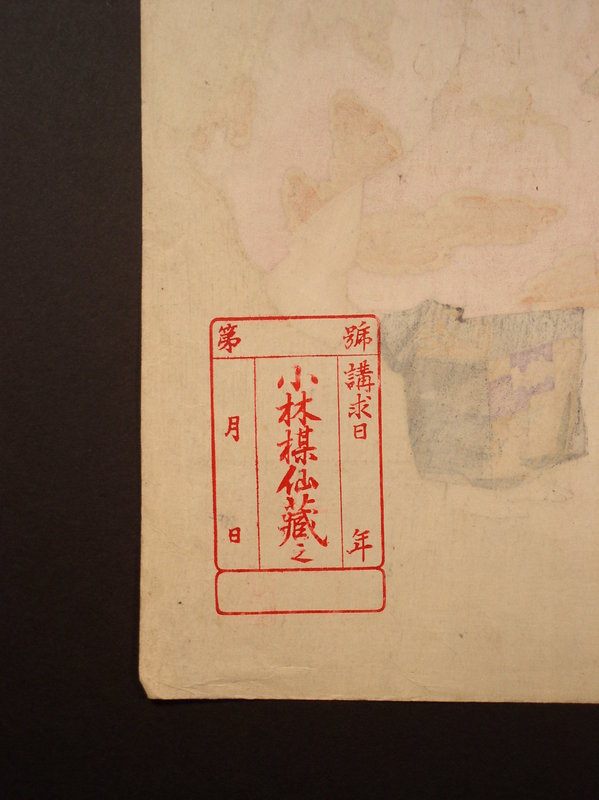 第 號
講求日 年
小林楳仙藏之
月 日